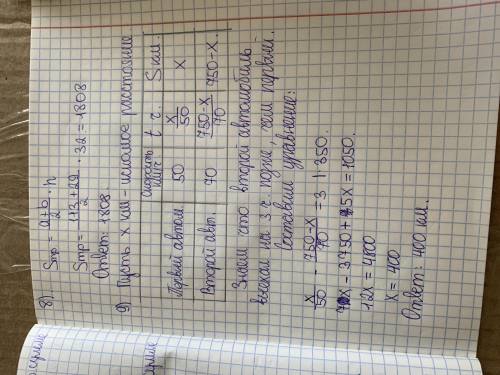 8).
Sтр = a+b/2 · h
Sтр = ... · 32 = 1808
Ответ: 1808.
9) Пусть x км – искомое расстояние
Скорость км/ч t ч. S км.
Первый автом. 50 x/50 x
Второй авт. 70 750-x/70 750-x.
Знаем что второй автомобиль
выехал на 3 ч. позже, чем первый.
Составим уравнение:
x/50 - 750-x/70 = 3 | 350.
7x - 3750 + 5x = 1050.
12x = 4800
x = 400
Ответ: 400 км.